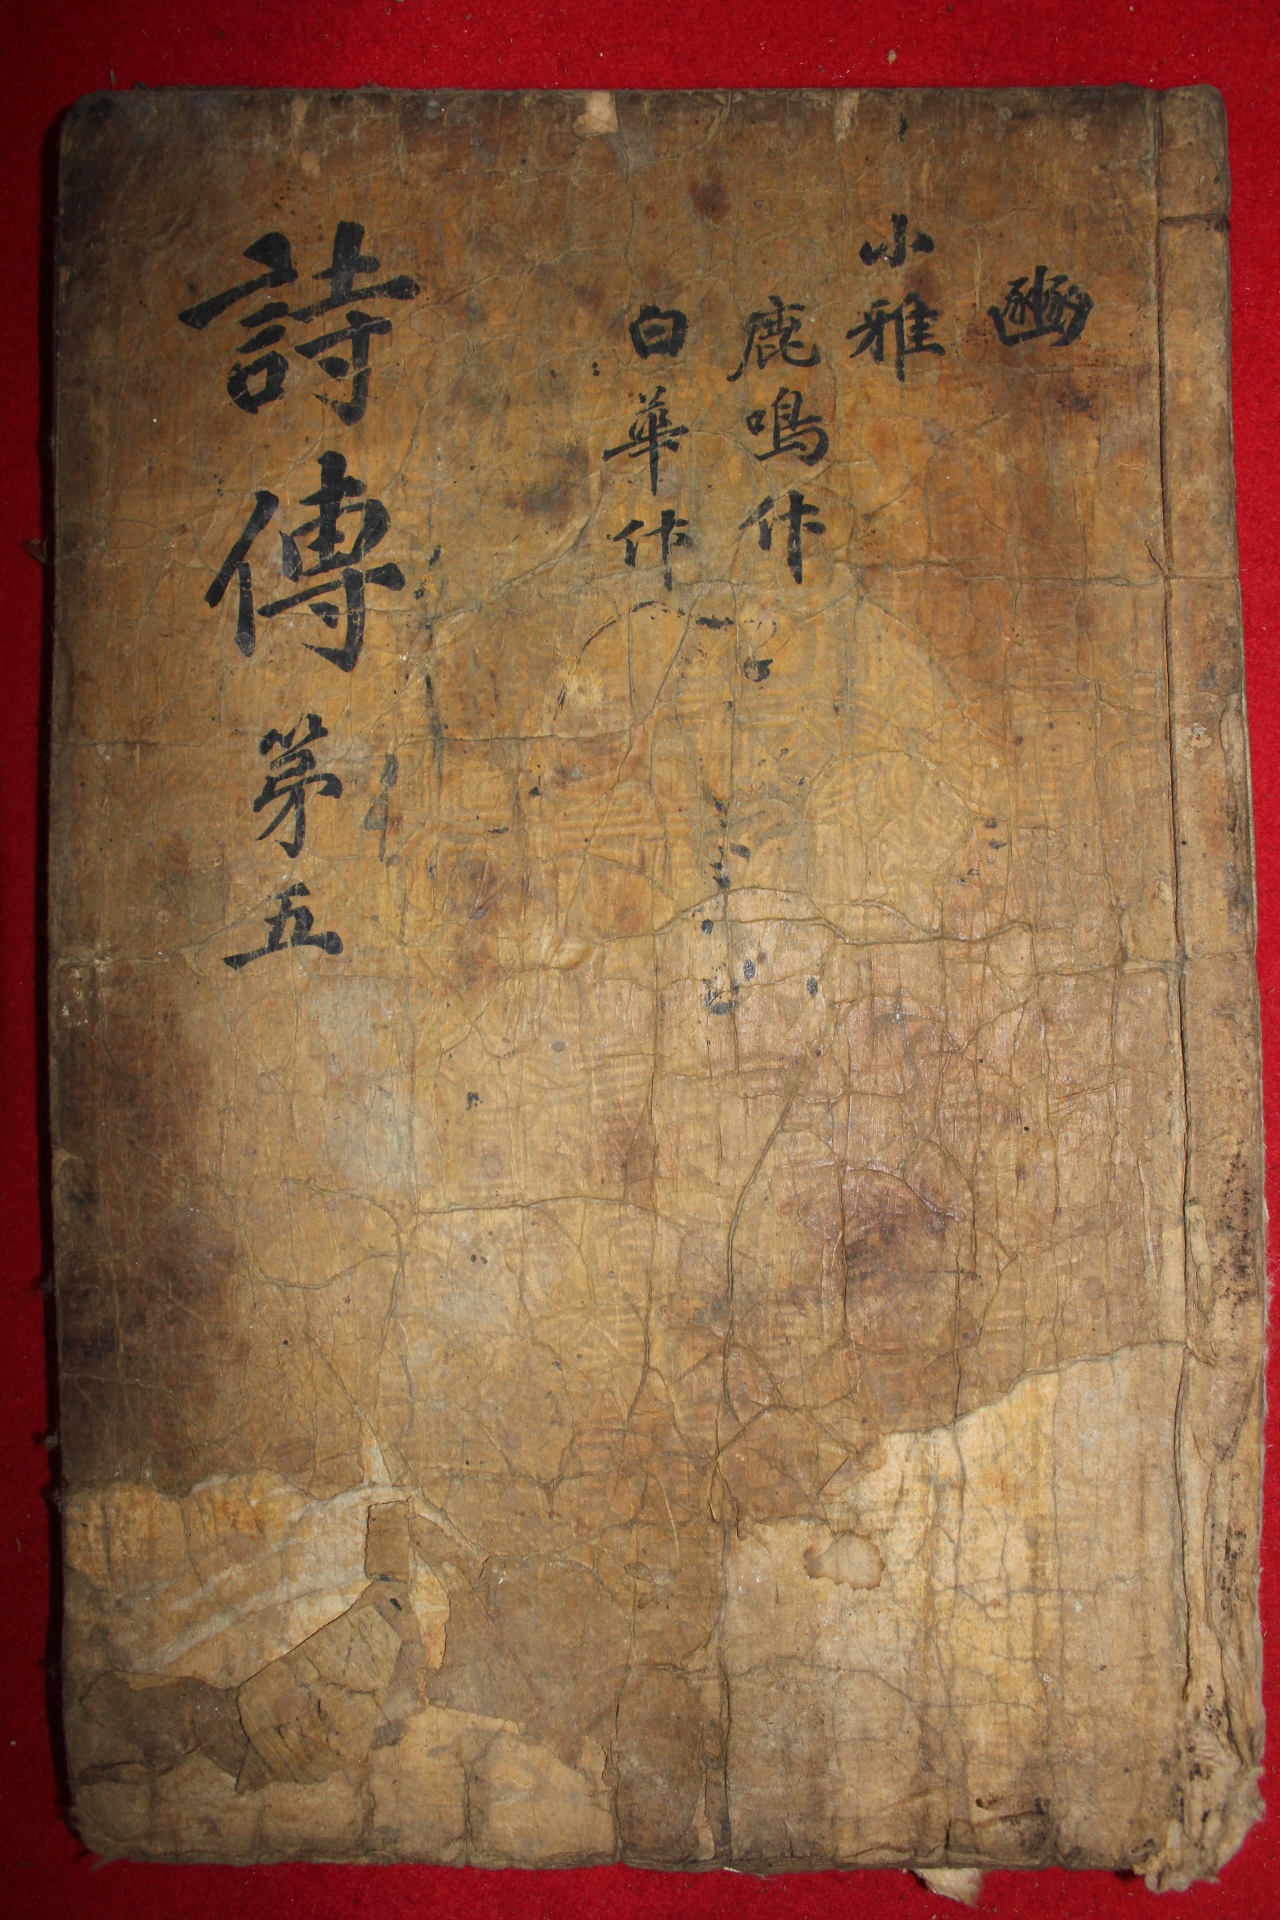 豳
小雅
鹿鳴什
白華什
詩傳 第五